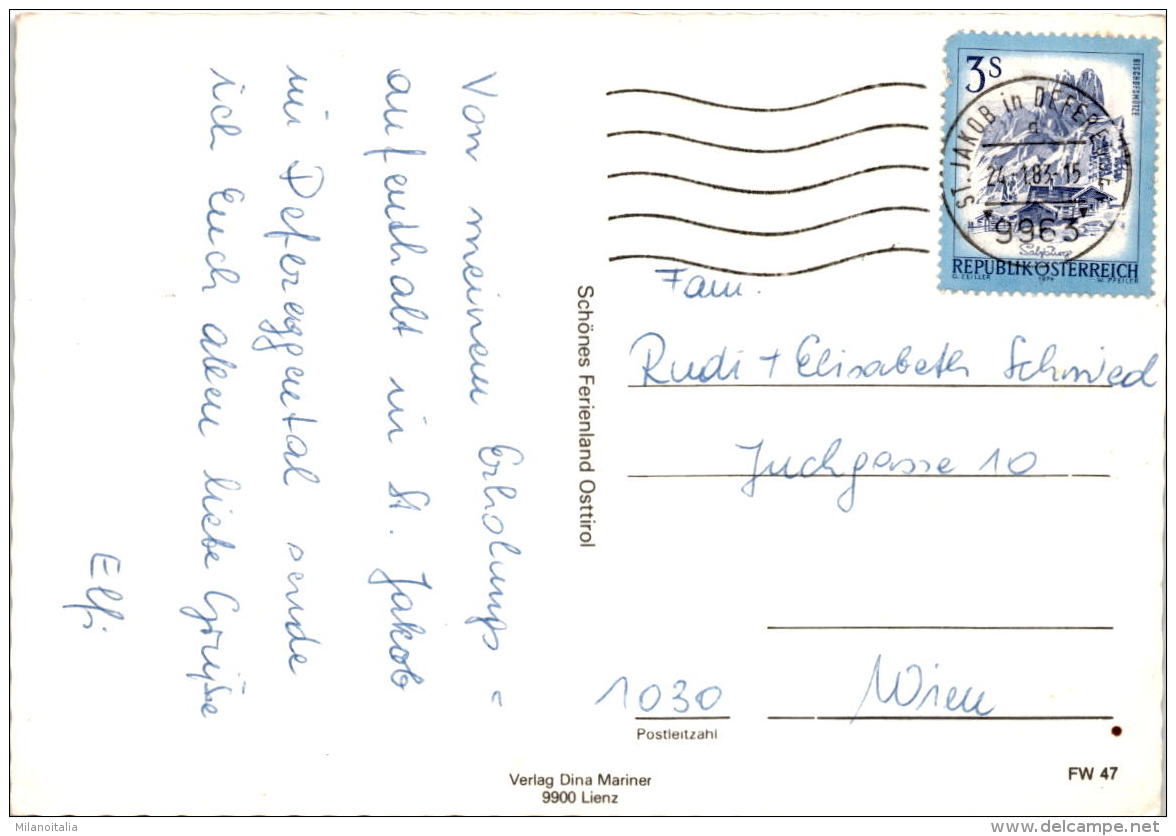 Von meinem Erholungs=
aufenthalt in St. Jakob
in Defereggental sende
ich Euch allen liebe Grüße
Elfi
Schönes Ferienland Osttirol
3S
BISCHOFSMÜTZE
Salzburg
REPUBLIK ÖSTERREICH
O. ZEILLER 1974 W. PFEILER
ST. JAKOB in DEFEREGGEN
d
24.-1.83-15
9963
Fam.
Rudi + Elisabeth Schmied
Juchgasse 10
1030 Wien
Postleitzahl
Verlag Dina Mariner
9900 Lienz
FW 47
Milanoitalia
www.delcampe.net